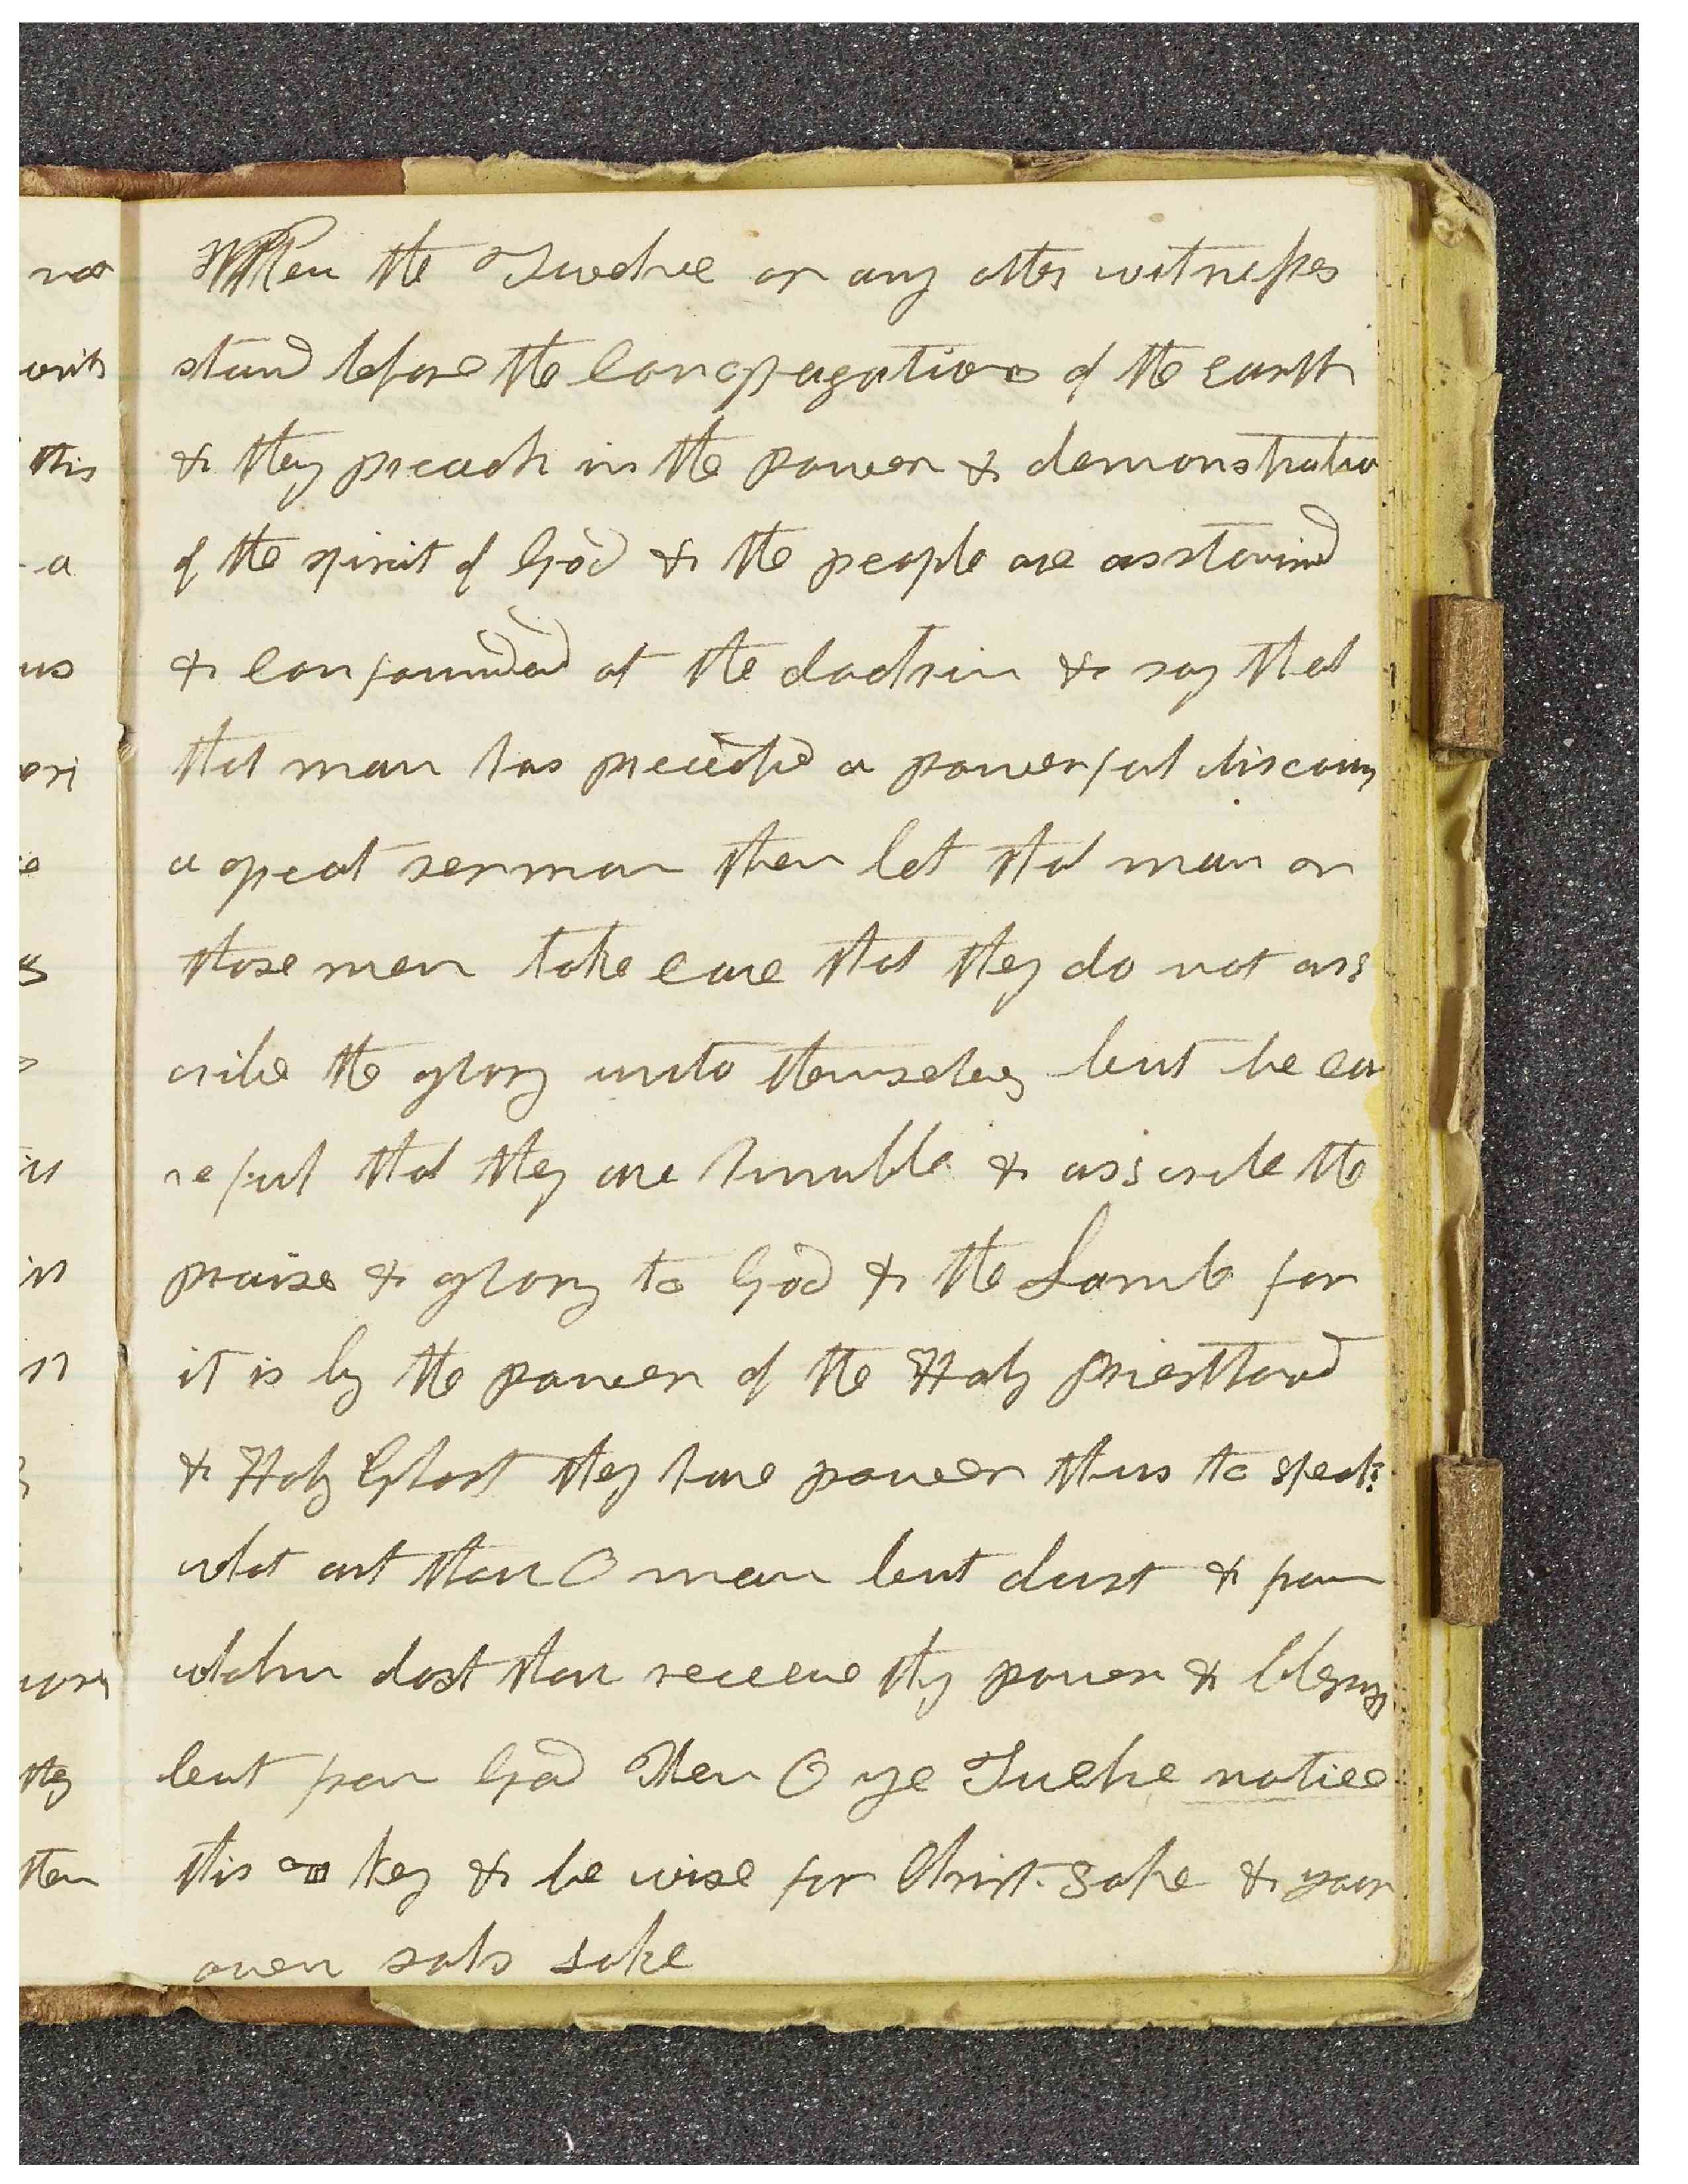 When the Twelve or any other witnesses
stand before the Congregations of the earth
& they preach in the power & demonstratio
of the spirit of God & the people are asstonind
& confounded at the doctrin & say that
that man has preached a powerful discours
a great sermon then let that man or
those men take care that they do not ass
cribe the glory unto themselves but be ca
reful that they are humble & asscribe the
praise & glory to God & the Lamb for
it is by the power of the Holy Priesthood
& Holy Ghost they have power thus to speak
what art thou O man but dust & from
whom dost thou receeve thy power & blessings
but from God Then O ye Twelve notice
this key & be wise for Christ sake & your
own sols sake
not
this
a
us
ori
is
in
they
then